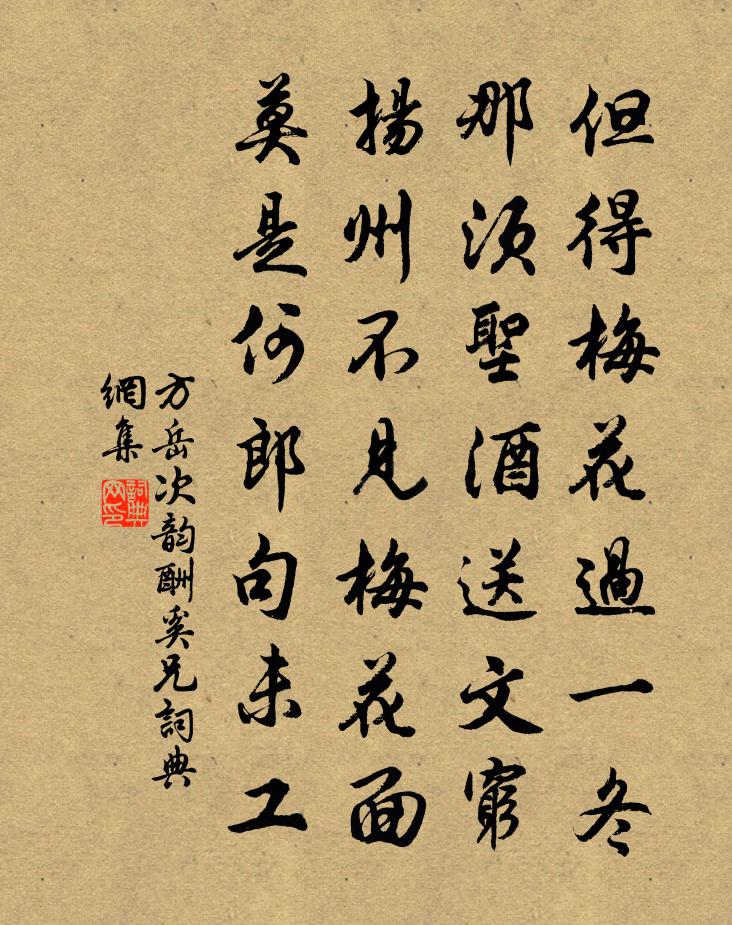 但得梅花過一冬
那須聖酒送文窮
揚州不見梅花面
莫是何郎句未工
方岳次韵酬奚兄詞典
網集
詞典
网印